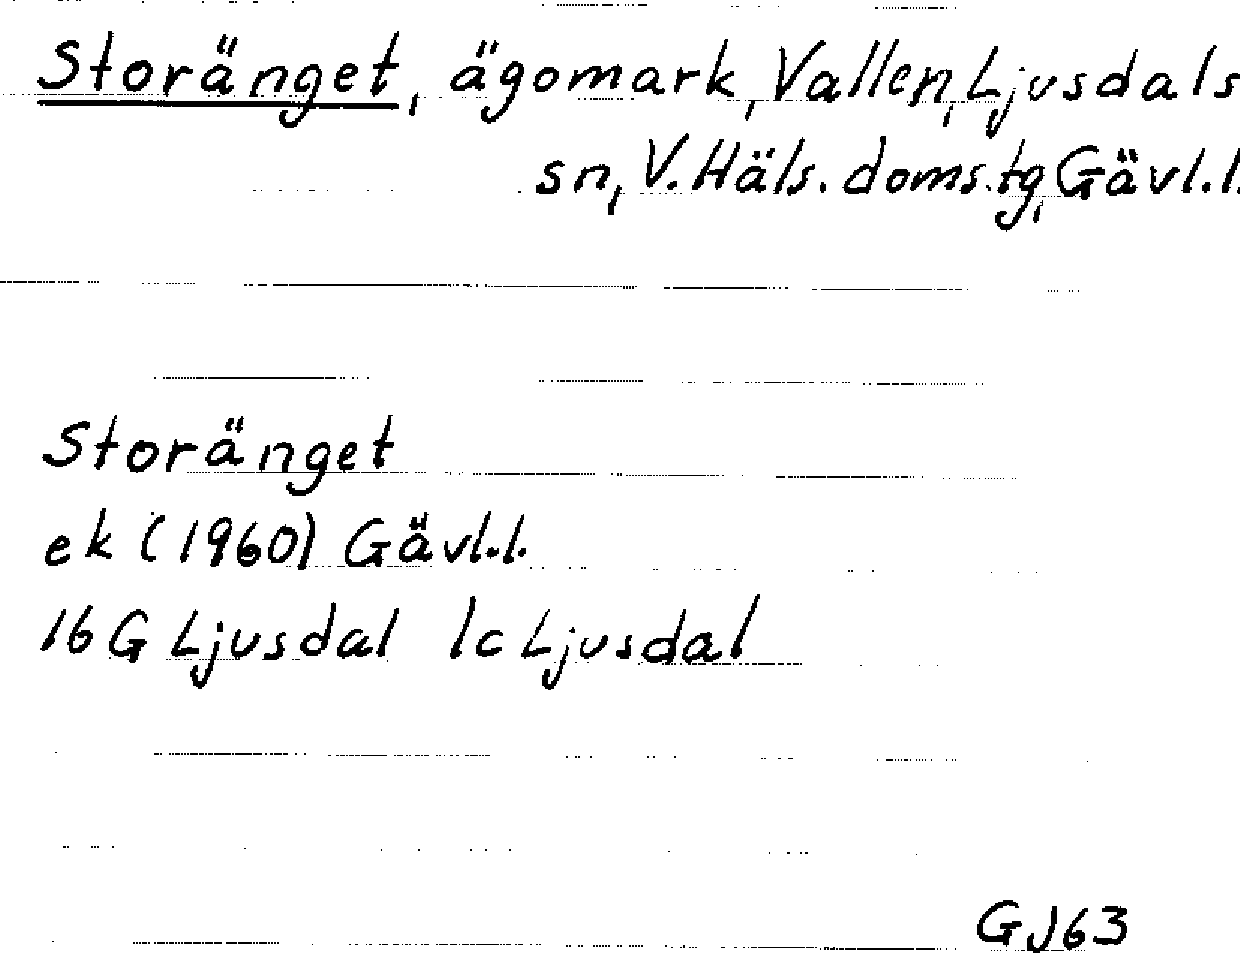 Storänget, ägomark, Vallen, Ljusdals
sn, V. Häls. doms.tg, Gävl.l.
Storänget
ek (1960) Gävl.l.
16 G Ljusdal 1c Ljusdal
GJ63